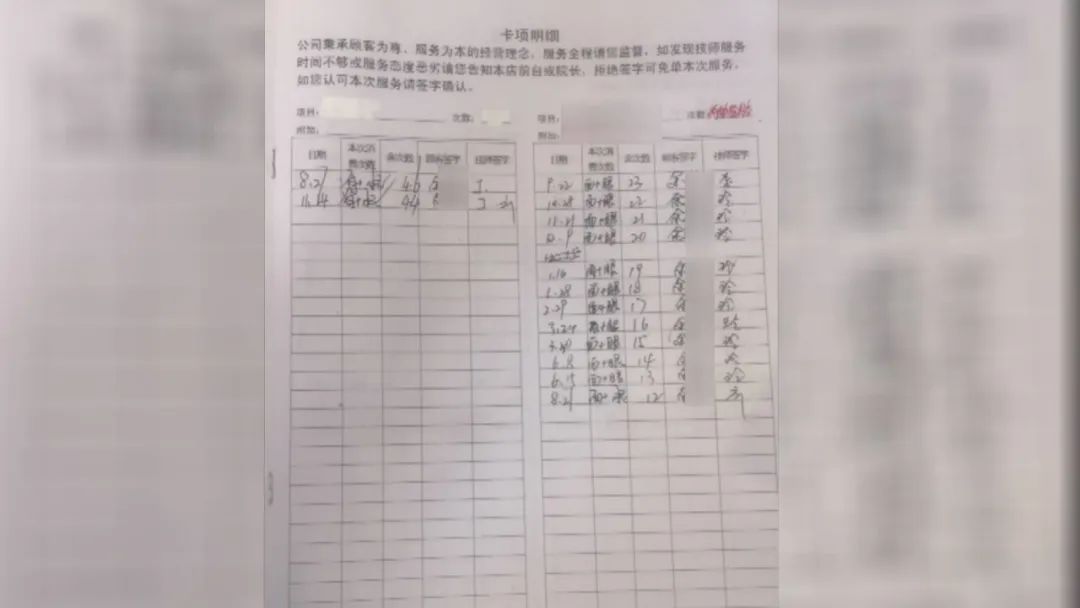 卡项明细
公司秉承顾客为尊、服务为本的经营理念，服务全程请您监督，如发现技师服务
时间不够或服务态度恶劣请您告知本店前台或院长，拒绝签字可免单本次服务。
如您认可本次服务请签字确认。
项目： 次数： 项目： 次数：
附加： 附加：
日期 本次消费次数 余次数 顾客签字 技师签字
8.21 46
11.14 44
日期 本次消费次数 余次数 顾客签字 技师签字
9.22 面+眼 23 余
10.28 面+眼 22 余 玲
11.21 面+眼 21 余 玲
12.9 面+眼 20 余 玲
1.16 面+眼 19 余 玲
1.28 面+眼 18 余 玲
2.29 面+眼 17 余 玲
3.24 面+眼 16 余 玲
面+眼 15 余 玲
6.8 面+眼 14
6.15 面+眼 13 玲
8.21 面+ 12